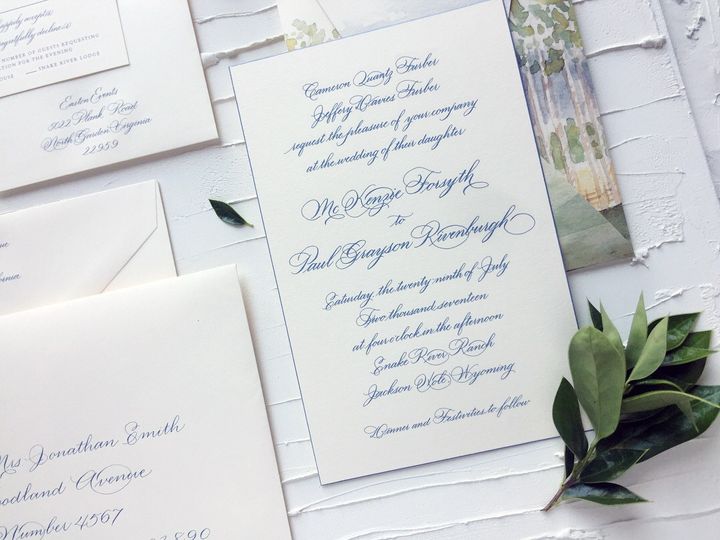 happily accepts
regretfully declines
NUMBER OF GUESTS REQUESTING
TION FOR THE EVENING
OUSE SNAKE RIVER LODGE
Easton Events
5022 Plank Road
North Garden Virginia
22959
Cameron Quantz Furber
Jeffery Davies Furber
request the pleasure of your company
at the wedding of their daughter
Mc Kenzie Forsyth
to
Paul Grayson Rivenburgh
Saturday, the twenty-ninth of July
Two thousand seventeen
at four o'clock in the afternoon
Snake River Ranch
Jackson Hole Wyoming
Dinner and Festivities to follow
Mrs Jonathan Smith
oodland Avenue
Number 4567